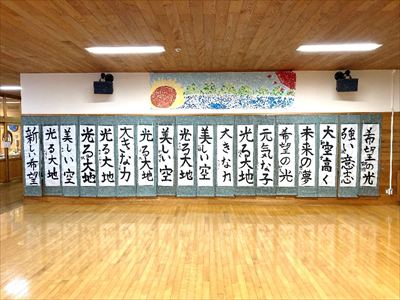 希望の光
強い意志
大空高く
未来の夢
希望の光
元気な子
光る大地
大きな力
美しい空
光る大地
美しい空
光る大地
大きな力
光る大地
光る大地
美しい空
光る大地
新しい希望